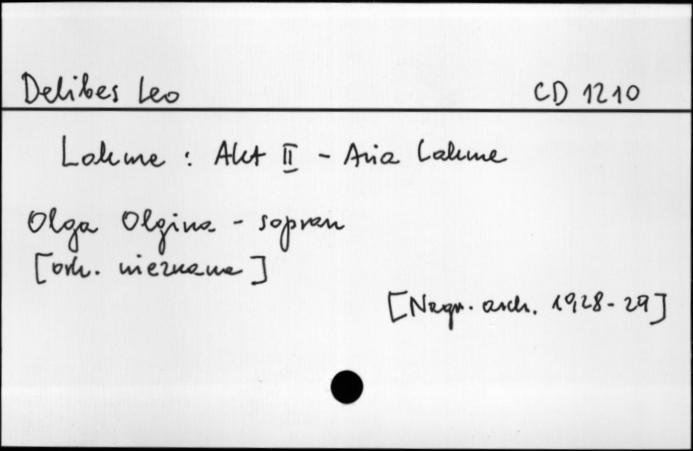 Delibes Leo CD 1210
Lakme : Akt II - Aria Lakme
Olga Olgina - sopran
[ork. nieznana]
[Nagr. arch. 1928-29]